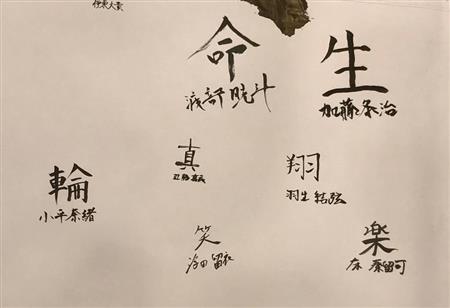 伊東大貴
命
渡部暁斗
生
加藤条治
輪
小平奈緒
真
翔
羽生結弦
笑
浮田留衣
楽
床 秦留可